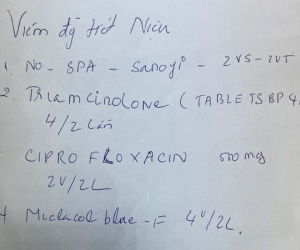 Viêm đg tiết Niệu
1. NO - SPA - Sanofi - 2VS - 2VT
2. TRIamcinolone ( TABLETS BP 4
4/2 Lần
CIPRO FLOXACIN 500 mg
2V/2L
4 Miclacol blue - F 4V/2L.